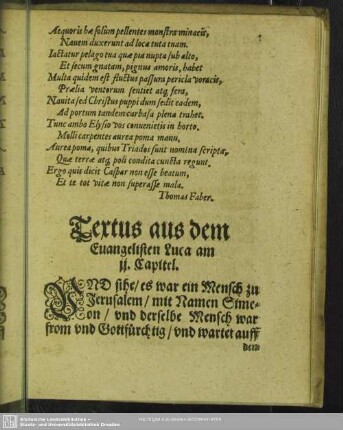 Aequoris hae solùm pellentes monstra minaciis,
Navem duxerunt ad loca tuta tuam.
Iactatur pelago tua quae pia nupta sub alto,
Et secum gnatam, pignus amoris, habet
Multa quidem est fluctus passura pericla voracis,
Praelia ventorum sentiet atq; fera,
Navita sed Christus puppi dum sedit eadem,
Ad portum tandem carbasa plena trahet.
Tunc ambo Elysio vos convenietis in horto.
Molli carpentes aurea poma manu,
Aurea poma, quibus Triados sunt nomina scripta,
Quae terrae atq; poli condita cuncta regunt.
Ergo quis dicit Caspar non esse beatum,
Et te tot vitae non superasse mala.
Thomas Faber.
Textus aus dem
Euangelisten Luca am
ij. Capitel.
VND sihe/ es war ein Mensch zu
Jerusalem/ mit Namen Sime-
on/ vnd derselbe Mensch war
from vnd Gottfürchtig/ vnd wartet auff
den
Sächsische Landesbibliothek -
Staats- und Universitätsbibliothek Dresden